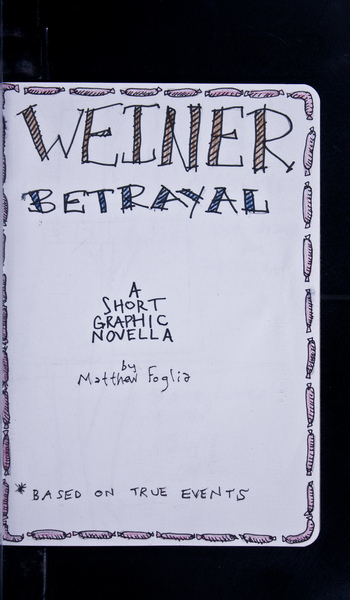 WEINER
BETRAYAL
A
SHORT
GRAPHIC
NOVELLA
by
Matthew Foglia
* BASED ON TRUE EVENTS